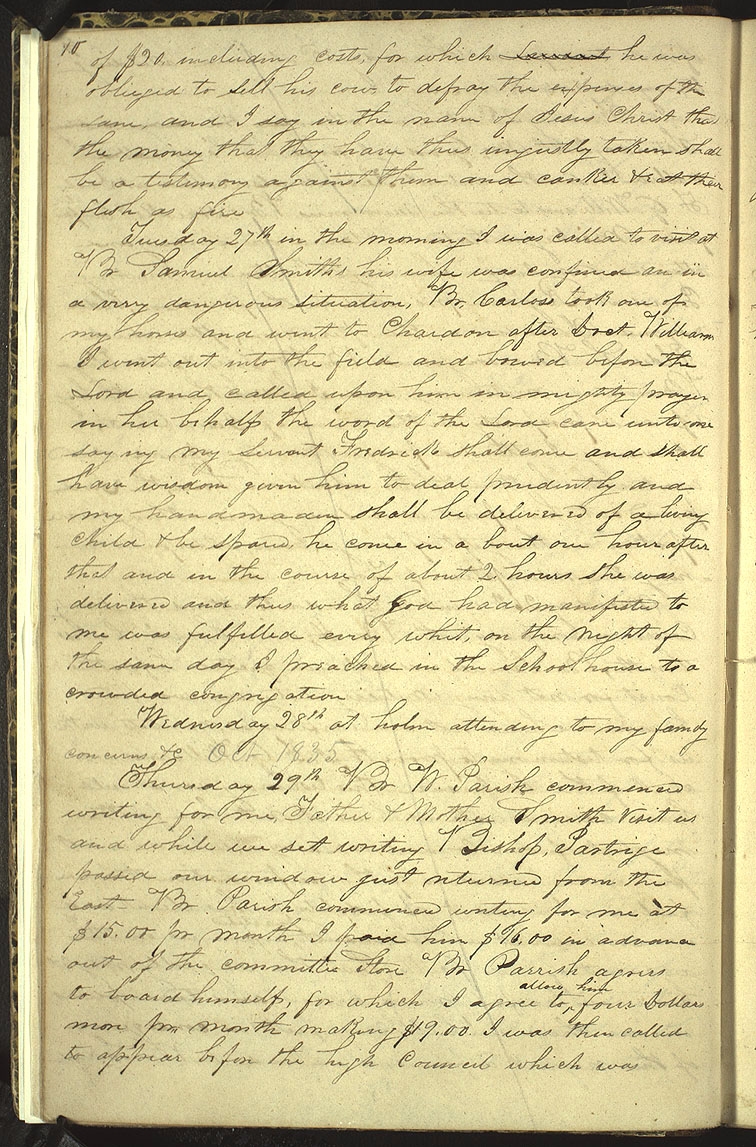 10
of $20, including costs, for which Lawsuit he was
obliged to sell his cow, to defray the expenses of the
same, and I say in the name of Jesus Christ that
the money that they have thus unjustly taken shall
be a testimony against them and canker & eat their
flesh as fire
Tuesday 27th in the morning I was called to visit at
Br Samuel Smiths his wife was confined an in
a verry dangerous situation, Br. Carloss took one of
my horses and went to Chardon after Doct. Williams
I went out into the field and bowed before the
Lord and called upon him in mighty prayer
in her behalf the word of the Lord came unto me
saying my Servant Fredrick shall come and shall
have wisdom given him to deal prudently and
my handmaden shall be delivered of a living
child & be spared, he come in a bout one hour after
that and in the course of about 2 hours she was
delivered and thus what God had manifested to
me was fulfilled every whit, on the night of
the same day I preached in the School house to a
crowded congregation
Wednesday 28th at holm attending to my family
concerns &c Oct 1835
Thursday 29th Br W. Parish commenced
writing for me, Father & Mother Smith visit us
and while we set writing Bishop, Partrige
passed our window just returned from the
East Br Parish commenced writing for me at
$15.00 pr month I paid him $16.00 in advance
out of the committee Store Br Parrish agrees
to board himself, for which I agree to allow him four Dollars
more pr month making $19.00. I was then called
to appear before the high Council which was